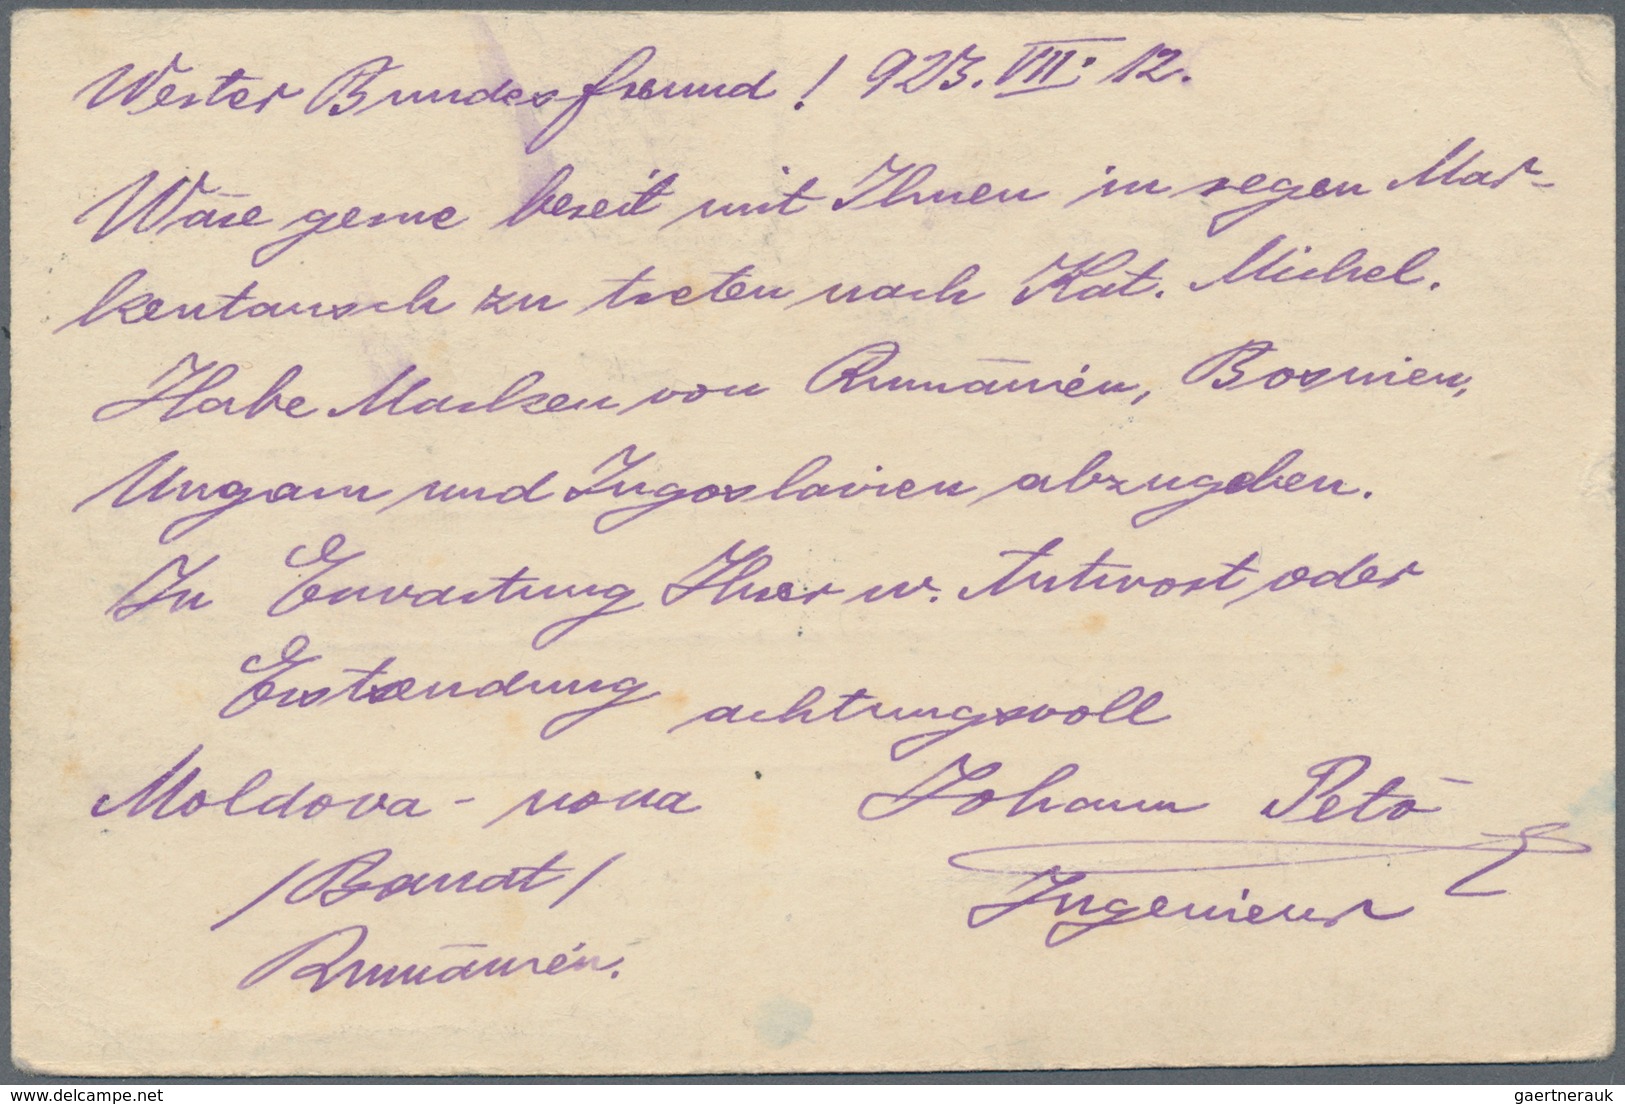 Werter Bundesfreund! 923. VIII. 12.
Wäre gerne bereit mit Ihnen in regen Mar-
kentausch zu treten nach Kat. Michel.
Habe Marken von Rumänien, Bosnien,
Ungarn und Jugoslavien abzugeben.
In Erwartung Ihrer w. Antwort oder
Erstsendung achtungsvoll
Moldova-noua Johann Pető
/Banat/ Ingenieur
Rumänien.
gaertnerauk